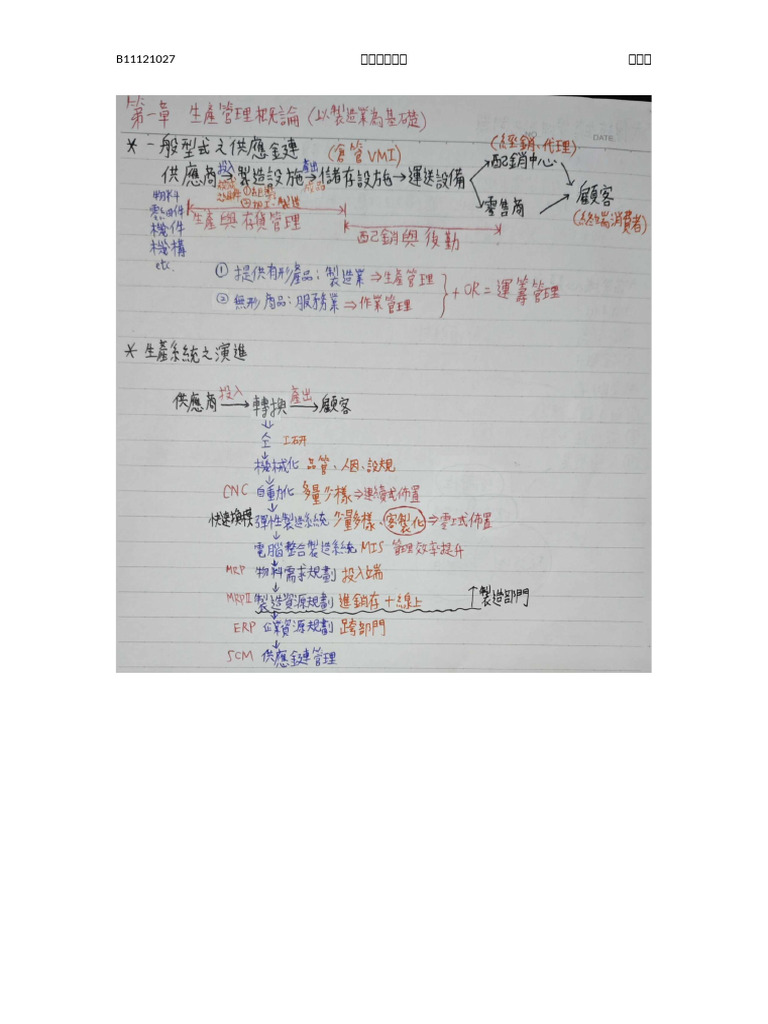 B11121027
第一章 生產管理概論(以製造業為基礎)
NO. DATE
* 一般型式之供應鏈 (倉管VMI) (經銷、代理)
供應商 投入→ 製造設施 產出→ 儲存設施→運送設備 配銷中心 零售商 顧客
(終端消費者)
成品
②加工:製造
物料
零組件
機件
機構
etc.
生產與存貨管理
配銷與後勤
① 提供有形產品:製造業⇒生產管理
② 無形商品:服務業⇒作業管理
+OR=運籌管理
* 生產系統之演進
供應商 投入→ 轉換 產出→ 顧客
工研
機械化 品管、人因、設規
CNC 自動化 多量少樣⇒連續式佈置
快速換模 彈性製造系統 少量多樣、客製化⇒零工式佈置
電腦整合製造系統 MIS 管理效率提升
MRP 物料需求規劃 投入端
MRPII 製造資源規劃 進銷存+線上 ↑製造部門
ERP 企業資源規劃 跨部門
SCM 供應鏈管理